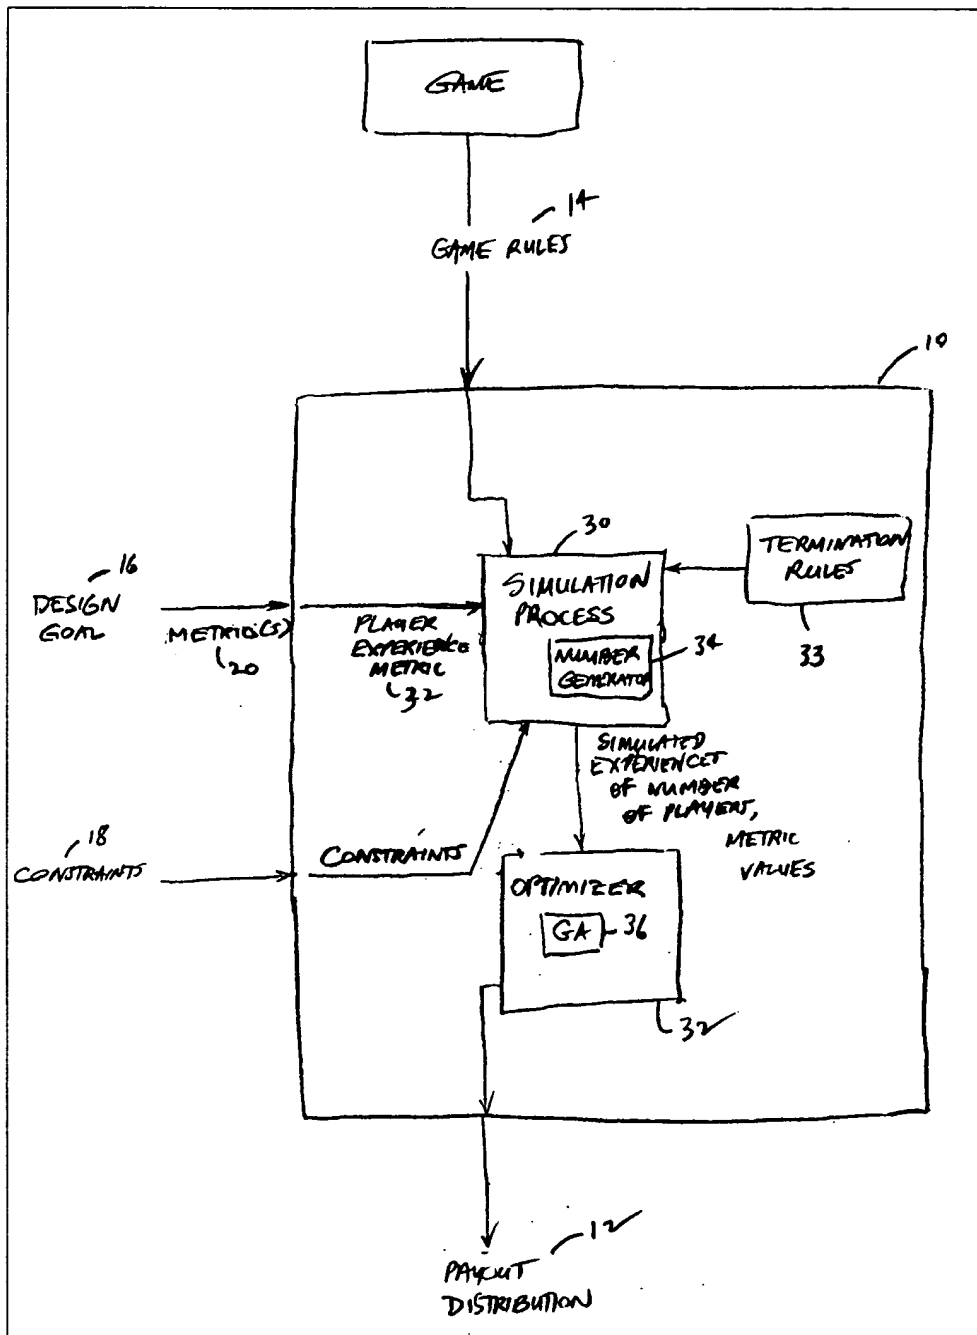 GAME
14
GAME RULES
10
16
DESIGN
GOAL
METRIC(S)
20
PLAYER
EXPERIENCE
METRIC
32
30
SIMULATION
PROCESS
NUMBER
GENERATOR
34
TERMINATION
RULES
33
SIMULATED
EXPERIENCES
OF NUMBER
OF PLAYERS,
METRIC
VALUES
18
CONSTRAINTS
CONSTRAINTS
OPTIMIZER
GA
36
32
12
PAYOUT
DISTRIBUTION